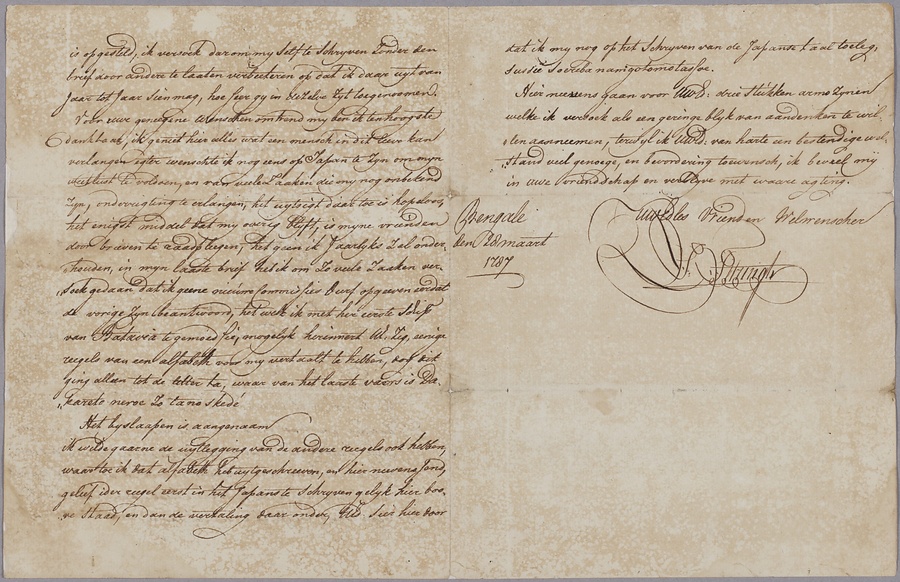 is opgesteld, ik versoek darom my self te schryven zonder den
brief door andere te laaten verbeeteren op dat ik daar uyt van
Jaar tot Jaar sien mag, hoe seer gy in duzelve zyt toegenoomen.
Voor uwe genegene wenschen omtrend my ben ik ten hoogste
dankbaar, ik geniet hier alles wat een mensch in dit leeven kan
verlangen egter wenschte ik nog eens op Japan te zyn om myn
weetlust te voldoen, en van veele zaaken die my nog onbekend
zyn, onderrigting te erlangen, het uytzigt daar toe is hopeloos,
het enigst middel dat my overig blyft, is myne vrienden
door brieven te raadpleegen, het geen ik Jaarlyks zal onder
„houden, in myn laaste brief heb ik om zo veele zaaken ver„
„soek gedaan dat ik geene nieuwe Commissies durf opgeeven eerdat
de vorige zyn beantwoord, het welk ik met het eerste schip
van Batavia te gemoed sie, mogelyk herinnert UE: zig, eenige
reegels van een alfabeth voor my vertaalt te hebben, dog dit
ging alleen tot de letter ta, waar van het laaste vaars is Da
„kareto neroe zo tanoskedé
Het byslaapen is aangenaam
Ik wilde gaarne de uytlegging van de andere reegels ook hebben,
waartoe ik dat alfabeth heb uytgeschreeven, en hier nevens sond,
gelief ider regel eerst in het Japans te schryven gelyk hier bo„
„ve staad, en dan de vertaling daar onder, UEd. siet hier door
dat ik my nog op het schryven van de Japanse taal toeleg,
Hier neevens gaan voor UwE: drie stukken armozynen
welke ik versoek als een geringe blyk van aandenken te wil„
„len aanneemen, terwyl ik UwEd: van harte een bestendige wel„
„stand veel genoege, en bevordering toewensch, ik beveel mij
in uwe vriendschap en verblyve met waare agting.
UwEdeles Vriend en Welwenscher
Bengale
den 28 maart
1787